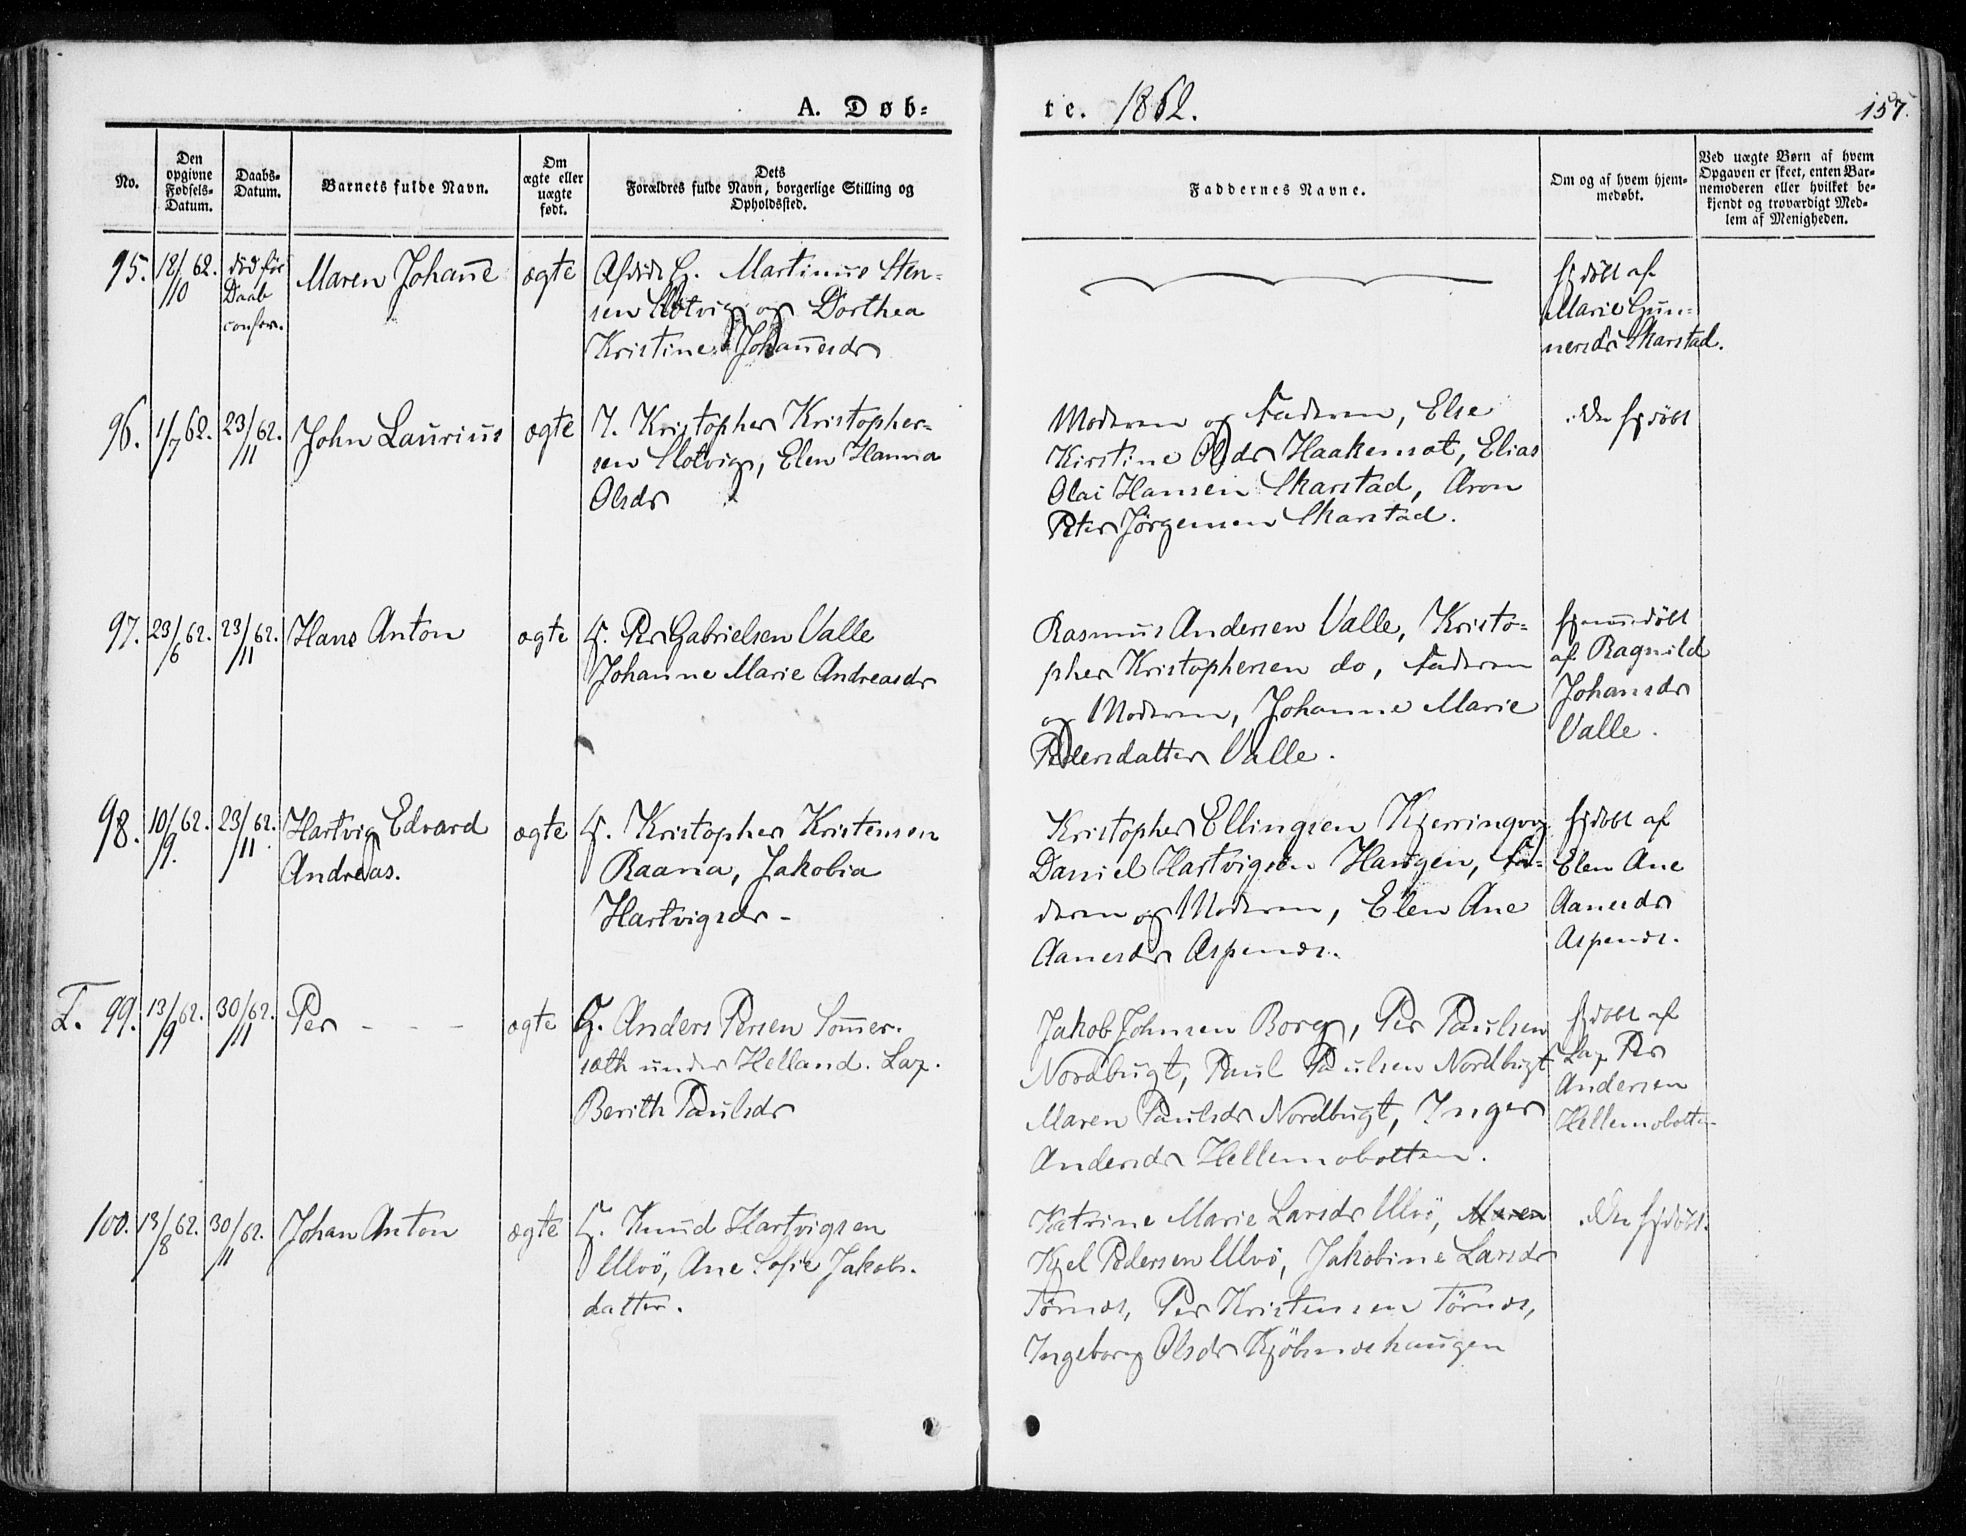 A. Døb-
te. 1862.
157.
No.
Den opgivne Fødsels-Datum.
Daabs-Datum.
Barnets fulde Navn.
Om ægte eller uægte født.
Dets Forældres fulde Navn, borgerlige Stilling og Opholdssted.
Faddernes Navne.
Om og af hvem hjem-medøbt.
Ved uægte Børn af hvem Opgaven er skeet, enten Bar-nemoderen eller hvilket be-kjendt og troværdigt Med-lem af Menigheden.
95. 18/10 62. død før Daab Maren Johanne ægte
G. Martinus Sten-
sen Slotvig og Dorthea
Kristine Johannesdr
hjdøbt af
Marie Gun-
nersdr Skarstad.
96. 1/7 62. 23/11 62. John Laurius ægte
I. Kristopher Kristopher-
sen Slotvig, Elen Hanna
Olsdr
Moderen og Faderen, Else
Kirstine Olsdr Haakensæt, Elias
Olai Hansen Skarstad, Aron
Peter Jørgensen Skarstad.
hjdøbt
97. 23/6 62. 23/11 62. Hans Anton ægte
G. Per Gabrielsen Valle
Johanne Marie Andreasdr
Rasmus Andersen Valle, Kristo-
pher Kristophersen do, Faderen
og Moderen, Johanne Marie
Pedersdatter Valle.
hjemmedøbt
af Ragnild
Johansdr
Valle.
98. 10/9 62. 23/11 62. Hartvig Edvard
Andreas. ægte
G. Kristopher Kristensen
Raana, Jakobia
Hartvigsdr -
Kristopher Ellingsen Kjerringvig
Daniel Hartvigsen Haugen, Fa-
deren og Moderen, Elen Ane
Aanesdr Aspenæs.
hjdøbt af
Elen Ane
Aanesdr
Aspenæs.
F. 99. 13/9 62. 30/11 62. Per - - - ægte
G. Anders Persen Sommer-
sæth under Helland. Lap.
Berith Paulsdr
Jakob Johnsen Borg, Per Paulsen
Nordbugt, Paul Paulsen Nordbugt
Maren Paulsdr Nordbugt, Inger
Andersdr Hellemobotten.
hjdøbt af
Lap Per
Andersen
Hellemobotten
100. 13/8 62. 30/11 62. Johan Anton ægte
G. Knud Hartvigsen
Ulvö, Ane Sofie Jakobs-
datter.
Katrine Marie Larsdr Ulvö, Maren
Kjel Pedersen Ulvö, Jakobine Larsdr
Törnæs, Per Kristensen Törnæs,
Ingeborg Olsdr Kjöbsnæshaugen
hjdøbt.